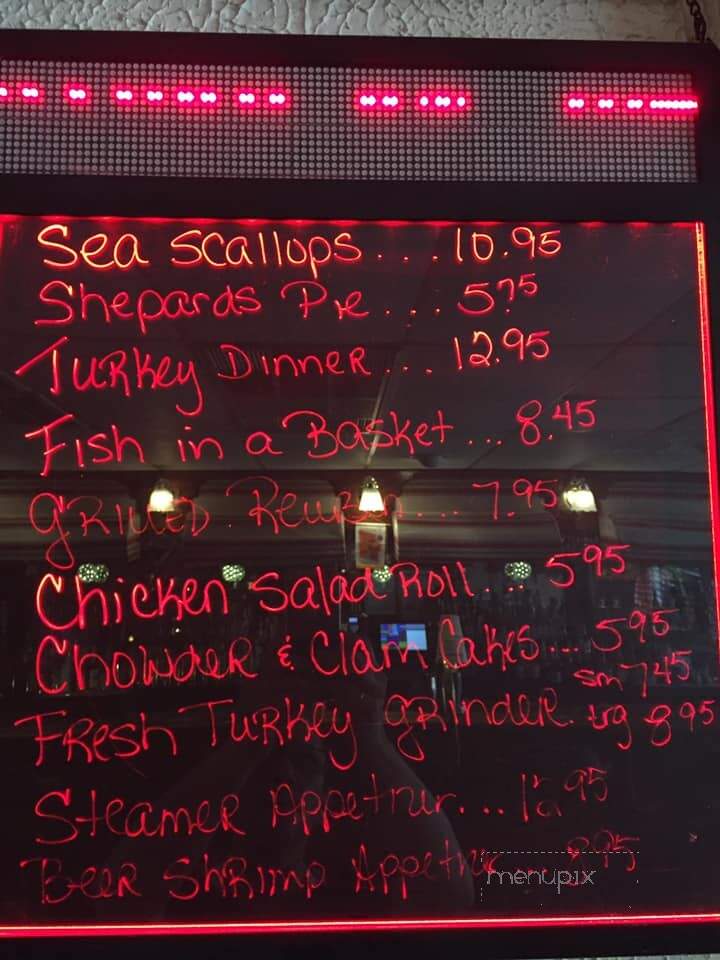 Sea Scallops....10.95
Shepards Pie....5.75
Turkey Dinner...12.95
Fish in a Basket...8.45
Grilled Reuben....7.95
Chicken Salad Roll...5.95
Chowder & Clam Cakes...5.95
sm 7.45
Fresh Turkey grinder. lrg 8.95
Steamer Appetizer...
Beer Shrimp Appetizer 8.95
menupix